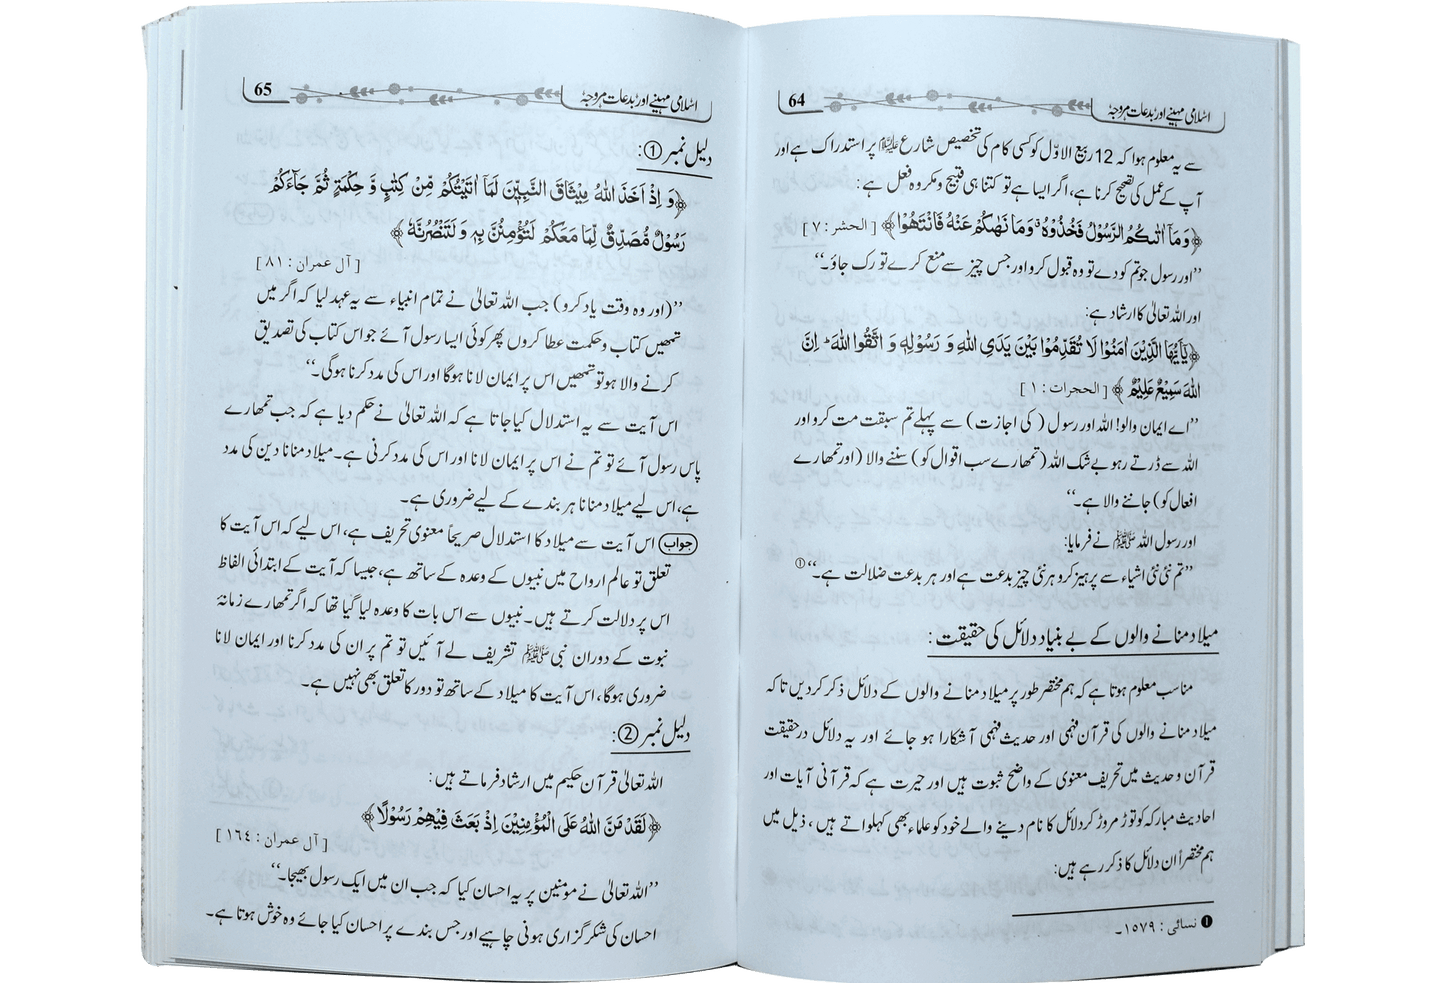 اسلامی مہینے اور بدعات مروجہ 64
سے یہ معلوم ہوا کہ 12 ربیع الاوّل کو کسی کام کی تخصیص شارع علیہ السلام پر استدراک ہے اور
آپ کے عمل کی تصحیح کرنا ہے، اگر ایسا ہے تو کتنا ہی قبیح و مکروہ فعل ہے:
﴿وَ مَاۤ اٰتٰىكُمُ الرَّسُوْلُ فَخُذُوْهُ ۚ وَ مَا نَهٰىكُمْ عَنْهُ فَانْتَهُوْا﴾ [الحشر : ۷]
’’اور رسول جو تم کو دے تو وہ قبول کرو اور جس چیز سے منع کرے تو رک جاؤ۔‘‘
اور اللہ تعالیٰ کا ارشاد ہے:
﴿یٰۤاَیُّهَا الَّذِیْنَ اٰمَنُوْا لَا تُقَدِّمُوْا بَیْنَ یَدَیِ اللّٰهِ وَ رَسُوْلِهٖ وَ اتَّقُوا اللّٰهَ ؕ اِنَّ
اللّٰهَ سَمِیْعٌ عَلِیْمٌ﴾ [الحجرات : ۱]
’’اے ایمان والو! اللہ اور رسول (کی اجازت) سے پہلے تم سبقت مت کرو اور
اللہ سے ڈرتے رہو بے شک اللہ (تمھارے سب اقوال کو) سننے والا (اور تمھارے
افعال کو) جاننے والا ہے۔‘‘
اور رسول اللہ ﷺ نے فرمایا:
’’تم نئی نئی اشیاء سے پرہیز کرو ہر نئی چیز بدعت ہے اور ہر بدعت ضلالت ہے۔‘‘ ①
میلاد منانے والوں کے بے بنیاد دلائل کی حقیقت:
مناسب معلوم ہوتا ہے کہ ہم مختصر طور پر میلاد منانے والوں کے دلائل ذکر کر دیں تاکہ
میلاد منانے والوں کی قرآن فہمی اور حدیث فہمی آشکارا ہو جائے اور یہ دلائل درحقیقت
قرآن و حدیث میں تحریف معنوی کے واضح ثبوت ہیں اور حیرت ہے کہ قرآنی آیات اور
احادیث مبارکہ کو توڑ مروڑ کر دلائل کا نام دینے والے خود کو علماء بھی کہلواتے ہیں، ذیل میں
ہم مختصراً ان دلائل کا ذکر رہے ہیں:
❶ نسائی : ۱۵۷۹۔
اسلامی مہینے اور بدعات مروجہ 65
دلیل نمبر ①:
﴿وَ اِذْ اَخَذَ اللّٰهُ مِیْثَاقَ النَّبِیّٖنَ لَمَاۤ اٰتَیْتُكُمْ مِّنْ كِتٰبٍ وَّ حِكْمَةٍ ثُمَّ جَآءَكُمْ
رَسُوْلٌ مُّصَدِّقٌ لِّمَا مَعَكُمْ لَتُؤْمِنُنَّ بِهٖ وَ لَتَنْصُرُنَّهٗ﴾
[آل عمران : ۸۱]
’’(اور وہ وقت یاد کرو) جب اللہ تعالیٰ نے تمام انبیاء سے یہ عہد لیا کہ اگر میں
تمھیں کتاب و حکمت عطا کروں پھر کوئی ایسا رسول آئے جو اس کتاب کی تصدیق
کرنے والا ہو تو تمھیں اس پر ایمان لانا ہوگا اور اس کی مدد کرنا ہوگی۔‘‘
اس آیت سے یہ استدلال کیا جاتا ہے کہ اللہ تعالیٰ نے حکم دیا ہے کہ جب تمھارے
پاس رسول آئے تو تم نے اس پر ایمان لانا اور اس کی مدد کرنی ہے۔ میلاد منانا دین کی مدد
ہے، اس لیے میلاد منانا ہر بندے کے لیے ضروری ہے۔
جواب اس آیت سے میلاد کا استدلال صریحاً معنوی تحریف ہے، اس لیے کہ اس آیت کا
تعلق تو عالم ارواح میں نبیوں کے وعدہ کے ساتھ ہے، جیسا کہ آیت کے ابتدائی الفاظ
اس پر دلالت کرتے ہیں۔ نبیوں سے اس بات کا وعدہ لیا گیا تھا کہ اگر تمھارے زمانۂ
نبوت کے دوران نبی ﷺ تشریف لے آئیں تو تم پر ان کی مدد کرنا اور ایمان لانا
ضروری ہوگا، اس آیت کا میلاد کے ساتھ تو دور کا تعلق بھی نہیں ہے۔
دلیل نمبر ②:
اللہ تعالیٰ قرآن حکیم میں ارشاد فرماتے ہیں:
﴿لَقَدْ مَنَّ اللّٰهُ عَلَى الْمُؤْمِنِیْنَ اِذْ بَعَثَ فِیْهِمْ رَسُوْلًا﴾
[آل عمران : ۱٦٤]
’’اللہ تعالیٰ نے مومنین پر یہ احسان کیا کہ جب ان میں ایک رسول بھیجا۔‘‘
احسان کی شکر گزاری ہونی چاہیے اور جس بندے پر احسان کیا جائے وہ خوش ہوتا ہے۔